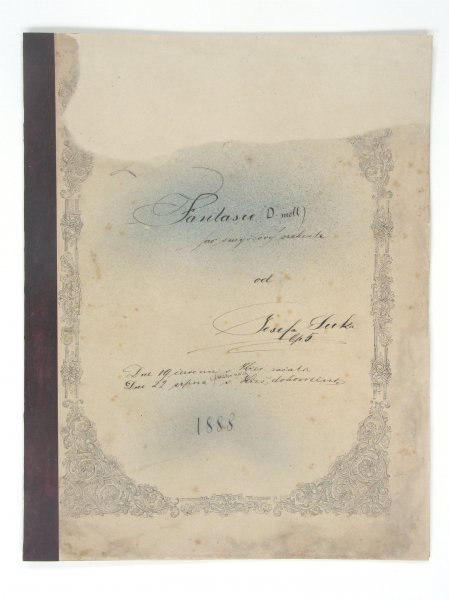 Fantasie (D moll)
pro smyčcový orchestr
od
Josefa Suka
Op 5
Dne 19 července v
Dne 22 srpna v dohotoveno
1888